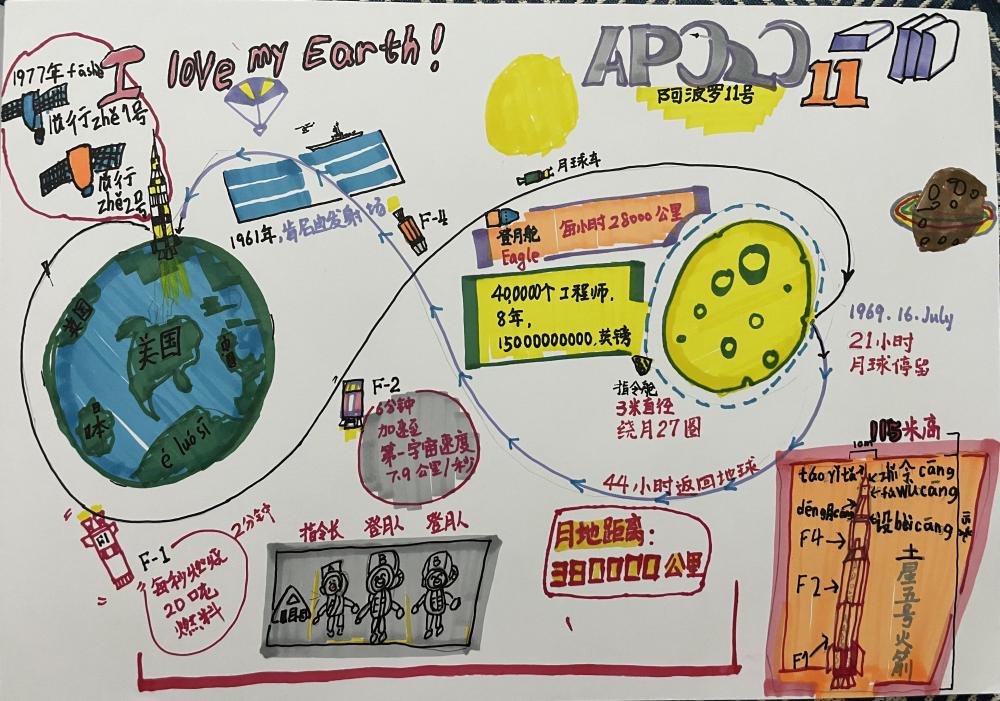 I love my Earth!
APOLLO 11
阿波罗11号
1977年 fāshè
旅行zhě1号
旅行
zhě2号
1961年,肯尼迪发射场
F-4
月球车
登月舱
Eagle
每小时28000公里
400000个工程师,
8年,
15000000000,英镑
指令舱
3米直径
绕月27圈
1969.16.July
21小时
月球停留
英国
美国
中国
日本
é luó sī
F-2
6分钟
加速至
第一宇宙速度
7.9公里/秒
44小时返回地球
F-1
2分钟
每秒燃烧
20吨
燃料
指令长 登月人 登月人
月地距离:
380000公里
115米高
10m
táo yì tǎ
指令cāng
fú wù cāng
dēng月cāng
设bèi cāng
F4
F2
F1
土星五号火箭